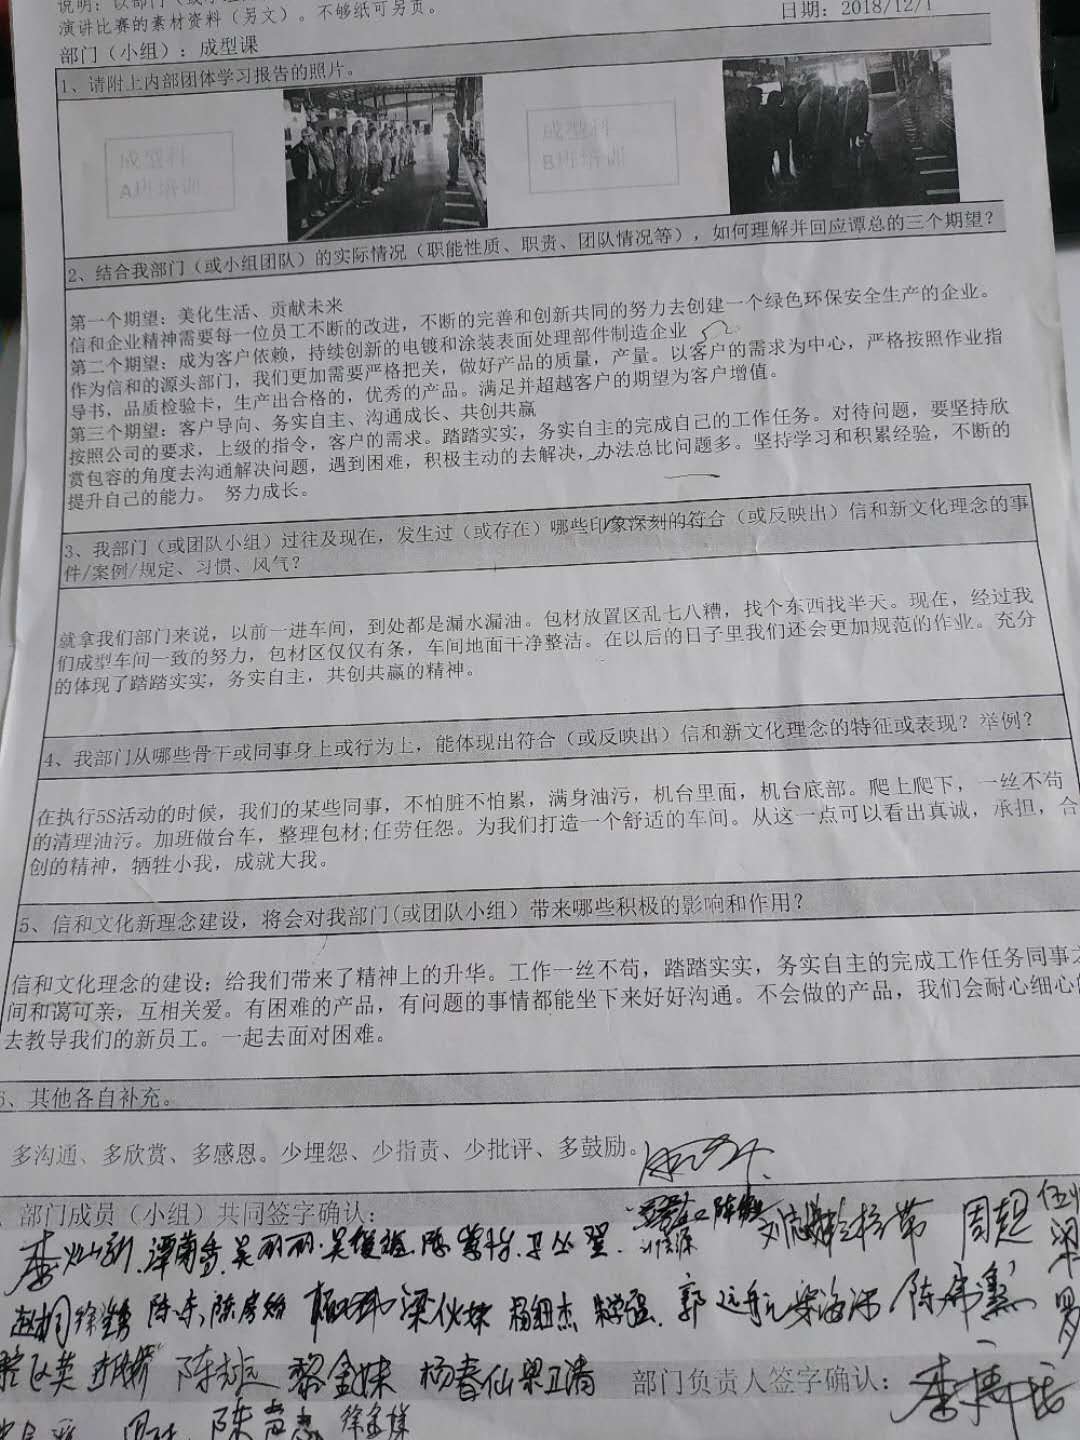 说明：以部门（或小组
演讲比赛的素材资料（另文）。不够纸可另页。
日期：2018/12/1
部门（小组）：成型课
1、请附上内部团体学习报告的照片。
成型科
A班培训
成型科
B班培训
2、结合我部门（或小组团队）的实际情况（职能性质、职责、团队情况等），如何理解并回应谭总的三个期望？
第一个期望：美化生活、贡献未来
信和企业精神需要每一位员工不断的改进，不断的完善和创新共同的努力去创建一个绿色环保安全生产的企业。
第二个期望：成为客户依赖，持续创新的电镀和涂装表面处理部件制造企业
作为信和的源头部门，我们更加需要严格把关，做好产品的质量，产量。以客户的需求为中心，严格按照作业指
导书，品质检验卡，生产出合格的，优秀的产品。满足并超越客户的期望为客户增值。
第三个期望：客户导向、务实自主、沟通成长、共创共赢
按照公司的要求，上级的指令，客户的需求。踏踏实实，务实自主的完成自己的工作任务。对待问题，要坚持欣
赏包容的角度去沟通解决问题，遇到困难，积极主动的去解决，办法总比问题多。坚持学习和积累经验，不断的
提升自己的能力。 努力成长。
3、我部门（或团队小组）过往及现在，发生过（或存在）哪些印象深刻的符合（或反映出）信和新文化理念的事
件/案例/规定、习惯、风气？
就拿我们部门来说，以前一进车间，到处都是漏水漏油。包材放置区乱七八糟，找个东西找半天。现在，经过我
们成型车间一致的努力，包材区仅仅有条，车间地面干净整洁。在以后的日子里我们还会更加规范的作业。充分
的体现了踏踏实实，务实自主，共创共赢的精神。
4、我部门从哪些骨干或同事身上或行为上，能体现出符合（或反映出）信和新文化理念的特征或表现？举例？
在执行5S活动的时候，我们的某些同事，不怕脏不怕累，满身油污，机台里面，机台底部。爬上爬下，一丝不苟
的清理油污。加班做台车，整理包材;任劳任怨。为我们打造一个舒适的车间。从这一点可以看出真诚，承担，合
创的精神，牺牲小我，成就大我。
5、信和文化新理念建设，将会对我部门(或团队小组）带来哪些积极的影响和作用？
信和文化理念的建设；给我们带来了精神上的升华。工作一丝不苟，踏踏实实，务实自主的完成工作任务同事之
间和蔼可亲，互相关爱。有困难的产品，有问题的事情都能坐下来好好沟通。不会做的产品，我们会耐心细心的
去教导我们的新员工。一起去面对困难。
6、其他各自补充。
多沟通、多欣赏、多感恩。少埋怨、少指责、少批评、多鼓励。
部门成员（小组）共同签字确认：
谭菊香 吴丽丽 周超
陈东 梁伙妹 杨细杰 郭远
黎金妹 杨春仙 梁卫清 部门负责人签字确认：